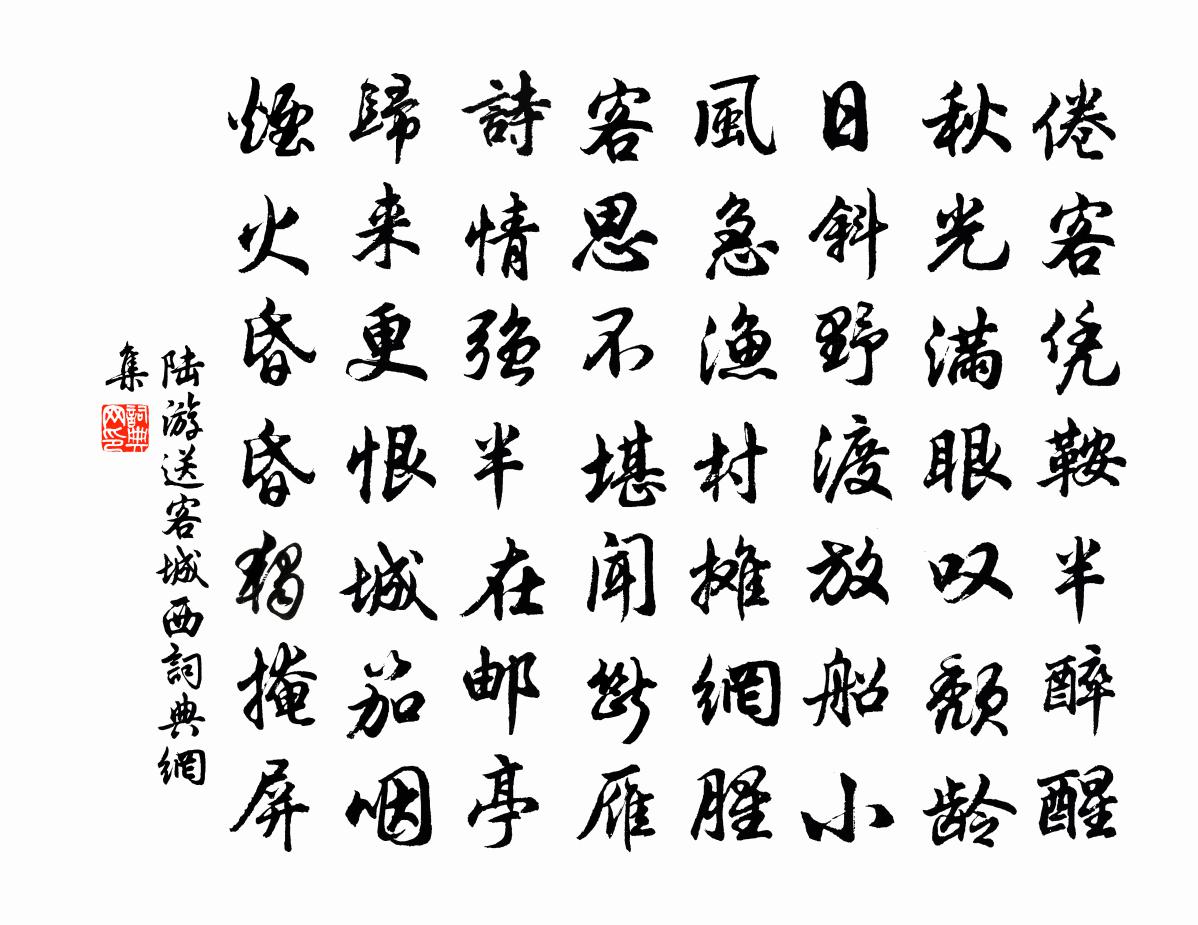 倦客凭鞍半醉醒
秋光滿眼叹颓龄
日斜野渡放船小
風急漁村摊網腥
客思不堪聞断雁
詩情强半在邮亭
歸来更恨城笳咽
煙火昏昏独掩屏
陆游送客城西詞典網
集
詞典
网印